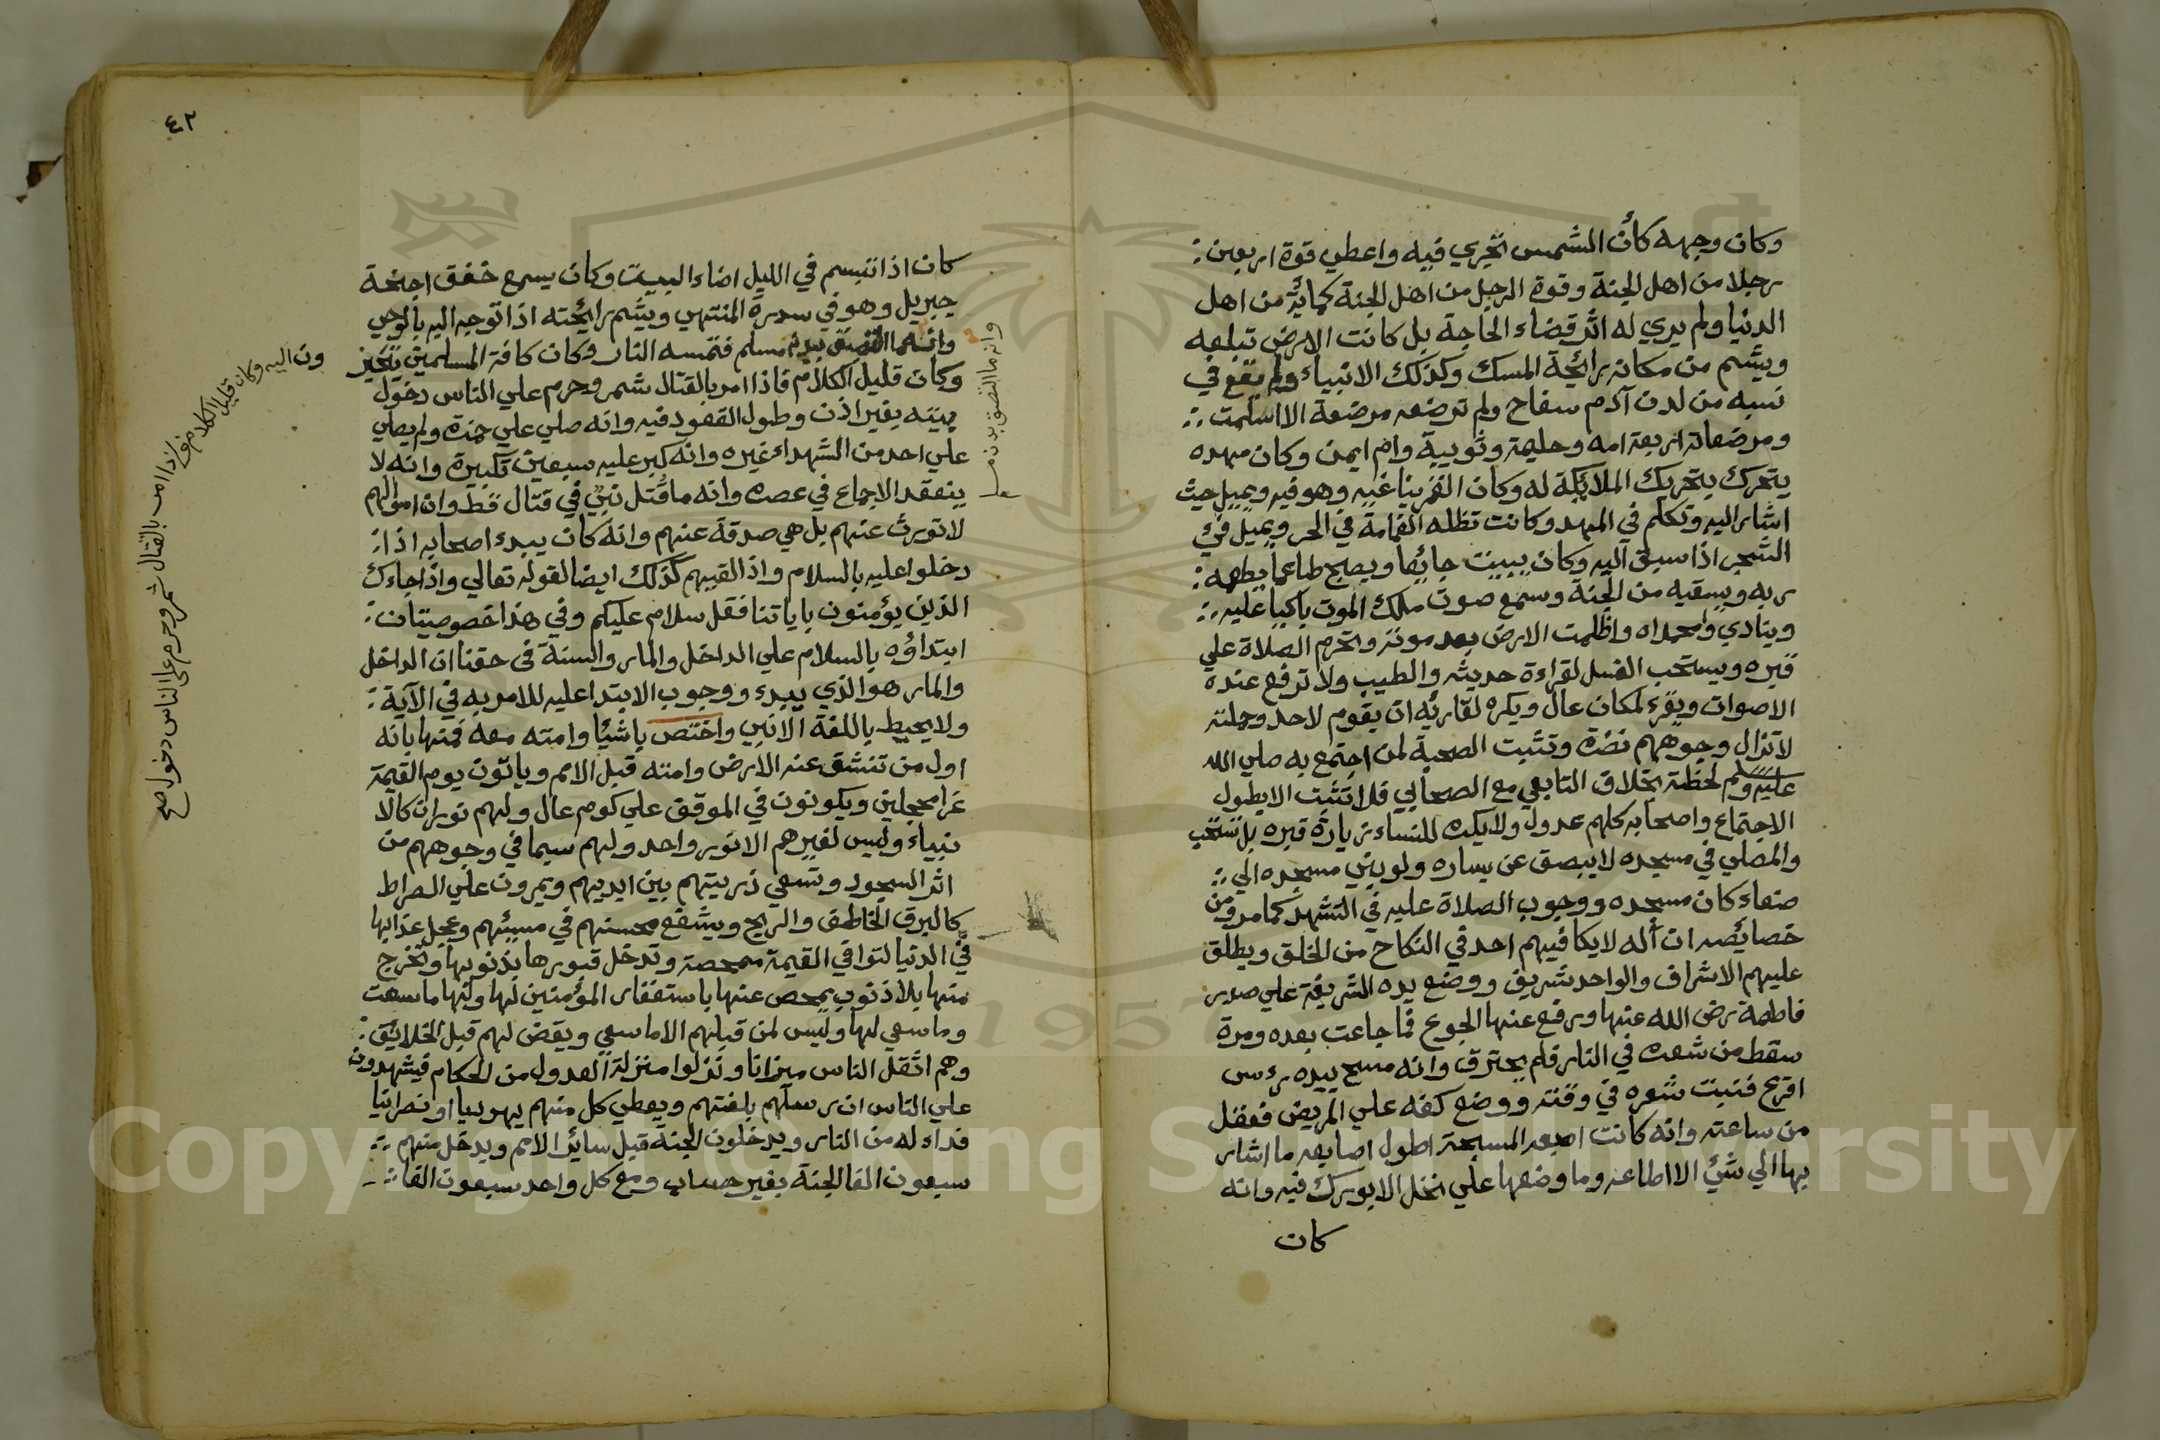 وكان وجهه كأن الشمس تجري فيه واعطي قوة اربعين
رجلا من اهل الجنة وقوة الرجل من اهل الجنة كمائة من اهل
الدنيا ولم يري له اثر قضاء الحاجة بل كانت الارض تبلعه
ويشم من مكانه رائحة المسك وكذلك الانبياء ولم يقع في
نسبه من لدن آدم سفاح ولم ترضعه مرضعة الا اسلمت
ومرضعاته اربعة امه وحليمة وثويبة وام ايمن وكان مهده
يتحرك بتحريك الملائكة له وكان القمر يناغيه وهو فيه ويميل حيث
اشار اليه وتكلم في المهد وكانت تظله الغمامة في الحر ويميل فيء
الشجر اذا سبق اليه وكان يبيت جائعا ويصبح طاعما يطعمه
ربه ويسقيه من الجنة وسمع صوت ملك الموت باكيا عليه
وينادي وامحمداه واظلمت الارض بعد موته وتحرم الصلاة علي
قبره ويستحب الغسل لقراءة حديثه والطيب ولا ترفع عنده
الاصوات ويقرء لمكان عال ويكره لقارئه ان يقوم لاحد وحملته
لا تزال وجوههم نضرة وتثبت الصحبة لمن اجتمع به صلي الله
عليه وسلم لحظة بخلاف التابعي مع الصحابي فلا تثبت الا بطول
الاجتماع واصحابه كلهم عدول ولا يكره للنساء زيارة قبره بل تستحب
والمصلي في مسجده لا يبصق عن يساره ولو بني مسجده الي
صنعاء كان مسجده ووجوب الصلاة عليه في التشهد كما مر ومن
خصائصه ان آله لا يكافيهم احد في النكاح من الخلق ويطلق
عليهم الاشراف والواحد شريف ووضع يده الشريفة علي صدر
فاطمة رضي الله عنها ورفع عنها الجوع فما جاعت بعده ومرة
سقط من شعره في النار فلم يحترق وانه مسح بيده رءس
اقرع فنبت شعره في وقته ووضع كفه علي المريض فعقل
من ساعته وانه كانت اصبعه المسبحة اطول اصابعه ما اشار
بها الي شئ الا اطاعه وما وضعها علي نخل الا بورك فيه وانه
كان
٤٢
كان اذا تبسم في الليل اضاء البيت وكان يسمع خفق اجنحة
جبريل وهو في سدرة المنتهي ويشم رائحته اذا توجه اليه بالوحي
وانه ما التصق ببدن مسلم فتمسه النار وكان كافة المسلمين
وكان قليل الكلام فاذا امر بالقتال شمر وحرم علي الناس دخول
بيته بغير اذن وطول القعود فيه وانه صلي علي حمزة ولم يصلي
علي احد من الشهداء غيره وانه كبر عليه سبعين تكبيرة وانه لا
ينعقد الاجماع في عصره وانه ما قتل نبي في قتال قط وان اموالهم
لا تورث عنهم بل هي صدقة عنهم وانه كان يبدء اصحابه اذا
دخلوا عليه بالسلام واذا لقيهم كذلك ايضا لقوله تعالي واذا جاءك
الذين يؤمنون باياتنا فقل سلام عليكم وفي هذا خصوصيتان
ابتداؤه بالسلام علي الداخل والمار والسنة في حقنا ان الداخل
والمار هو الذي يبدء ووجوب الابتدا عليه للامر به في الآية
ولا يحيط باللغة الا نبي واختص باشيا وامته معه فمنها بانه
اول من تنشق عنه الارض وامته قبل الامم وياتون يوم القيمة
غرا محجلين ويكونون في الموقف علي كوم عال ولهم نوران كالا
نبياء وليس لغيرهم الا نور واحد ولهم سيما في وجوههم من
اثر السجود وتسعي ذريتهم بين ايديهم ويمرون علي الصراط
كالبرق الخاطف والريح ويشفع محسنهم في مسيئهم وعجل عذابها
في الدنيا لتوافي القيمة ممحصة وتدخل قبورها بذنوبها وتخرج
منها بلا ذنوب يمحص عنها باستغفار المؤمنين لها ولها ما سعت
وما سعي لها وليس لمن قبلهم الا ما سعي ويقض لهم قبل الخلائق
وهم اثقل الناس ميزانا ونزلوا منزلة العدول من الحكام فيشهدون
علي الناس ان رسلهم بلغتهم ويعطي كل منهم يهوديا او نصرانيا
فداء له من النار ويدخلون الجنة قبل سائر الامم ويدخل منهم
سبعون الفا الجنة بغير حساب ومع كل واحد سبعون الفا
وانه ما التصق ببدن
ون اليه وكان قليل الكلام فاذا امر بالقتال شمر وحرم علي الناس دخول صح